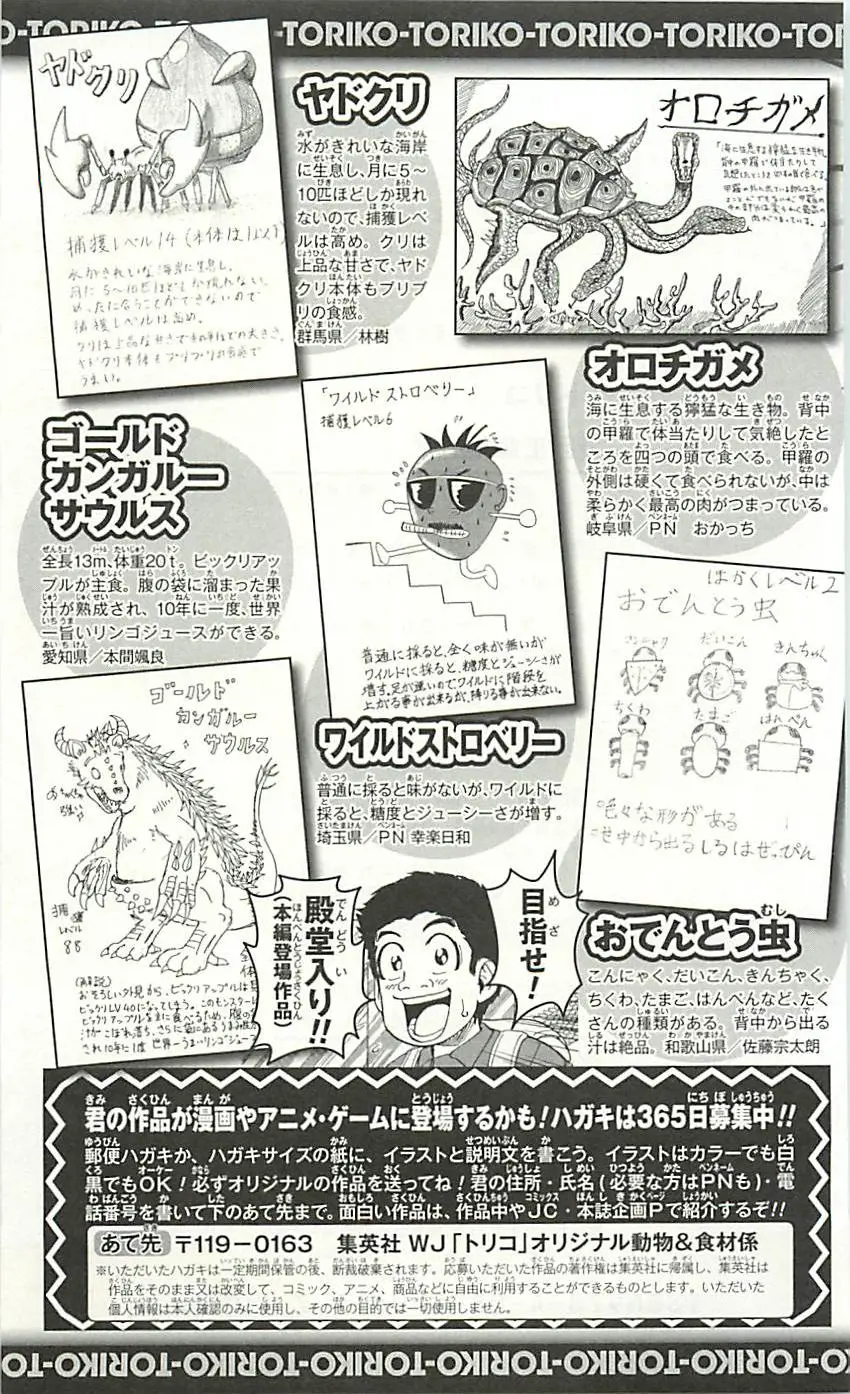 -TORIKO-TORIKO-TORIKO-TORIKO-TORI
ヤドクリ
捕獲レベル14(本体は1以下)
水がきれいな海岸に生息し、
月に5〜10匹ほどしか現れない。
めったに会うことができないので
捕獲レベルは高め。
うまい。
ヤドクリ
水がきれいな海岸
に生息し、月に5〜
10匹ほどしか現れ
ないので、捕獲レベ
ルは高め。クリは
上品な甘さで、ヤド
クリ本体もプリプ
リの食感。
群馬県/林樹
オロチガメ
オロチガメ
海に生息する獰猛な生き物。背中
の甲羅で体当たりして気絶したと
ころを四つの頭で食べる。甲羅の
外側は硬くて食べられないが、中は
柔らかく最高の肉がつまっている。
岐阜県/PN おかっち
「ワイルド ストロベリー」
捕獲レベル6
普通に採ると、全く味が無いが
ワイルドに採ると、糖度とジューシーさが
増す。足が速いので、ワイルドに階段を
上がる事が出来るが、降りる事が出来ない。
ワイルドストロベリー
普通に採ると味がないが、ワイルドに
採ると、糖度とジューシーさが増す。
埼玉県/PN 幸楽日和
ゴールド
カンガルー
サウルス
全長13m、体重20t。ビックリアッ
プルが主食。腹の袋に溜まった果
汁が熟成され、10年に一度、世界
一旨いリンゴジュースができる。
愛知県/本間颯良
ゴールド
カンガルー
サウルス
捕獲
レベル
88
(解説)
ほかくレベル2
おでんとう虫
コンニャク
だいこん
きんちゃく
ちくわ
たまご
はんぺん
色々な形がある
せ中から出るしるはぜっぴん
おでんとう虫
こんにゃく、だいこん、きんちゃく、
ちくわ、たまご、はんぺんなど、たく
さんの種類がある。背中から出る
汁は絶品。和歌山県/佐藤宗太朗
目指せ!
殿堂入り!!
(本編登場作品)
君の作品が漫画やアニメ・ゲームに登場するかも!ハガキは365日募集中!!
郵便ハガキか、ハガキサイズの紙に、イラストと説明文を書こう。イラストはカラーでも白
黒でもOK!必ずオリジナルの作品を送ってね!君の住所・氏名(必要な方はPNも)・電
話番号を書いて下のあて先まで。面白い作品は、作品中やJC・本誌企画Pで紹介するぞ!!
あて先 〒119-0163 集英社 WJ「トリコ」オリジナル動物&食材係
※いただいたハガキは一定期間保管の後、断裁破棄されます。応募いただいた作品の著作権は集英社に帰属し、集英社は
作品をそのまま又は改変して、コミック、アニメ、商品などに自由に利用することができるものとします。いただいた
個人情報は本人確認のみに使用し、その他の目的では一切使用しません。